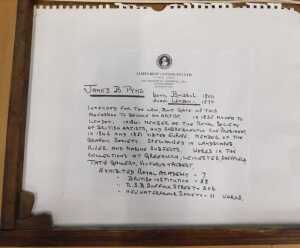 JAMES B PYNE BORN BRISTOL 1800
DIED LONDON 1870
INTENDED FOR THE LAW, BUT GAVE UP THIS
PROFESSION TO BECOME AN ARTIST. IN 1835 MOVED TO
LONDON. IN MEMBER OF THE ROYAL SOCIETY
OF BRITISH ARTISTS, AND SUBSEQUENTLY VICE PRESIDENT
IN 1846 AND 1851 VISITED EUROPE. MEMBER OF THE
GRAPHIC SOCIETY. SPECIALISED IN LANDSCAPES
RIVER AND MARINE SUBJECTS. WORKS IN THE
COLLECTIONS AT GREENWICH, LEICESTER, SHEFFIELD
TATE GALLERY, VICTORIA & ALBERT
EXHIBITED ROYAL ACADEMY - 7
BRITISH INSTITUTION -
R.S.B. SUFFOLK STREET - 206
NEW WATERCOLOUR SOCIETY - 11 WORKS